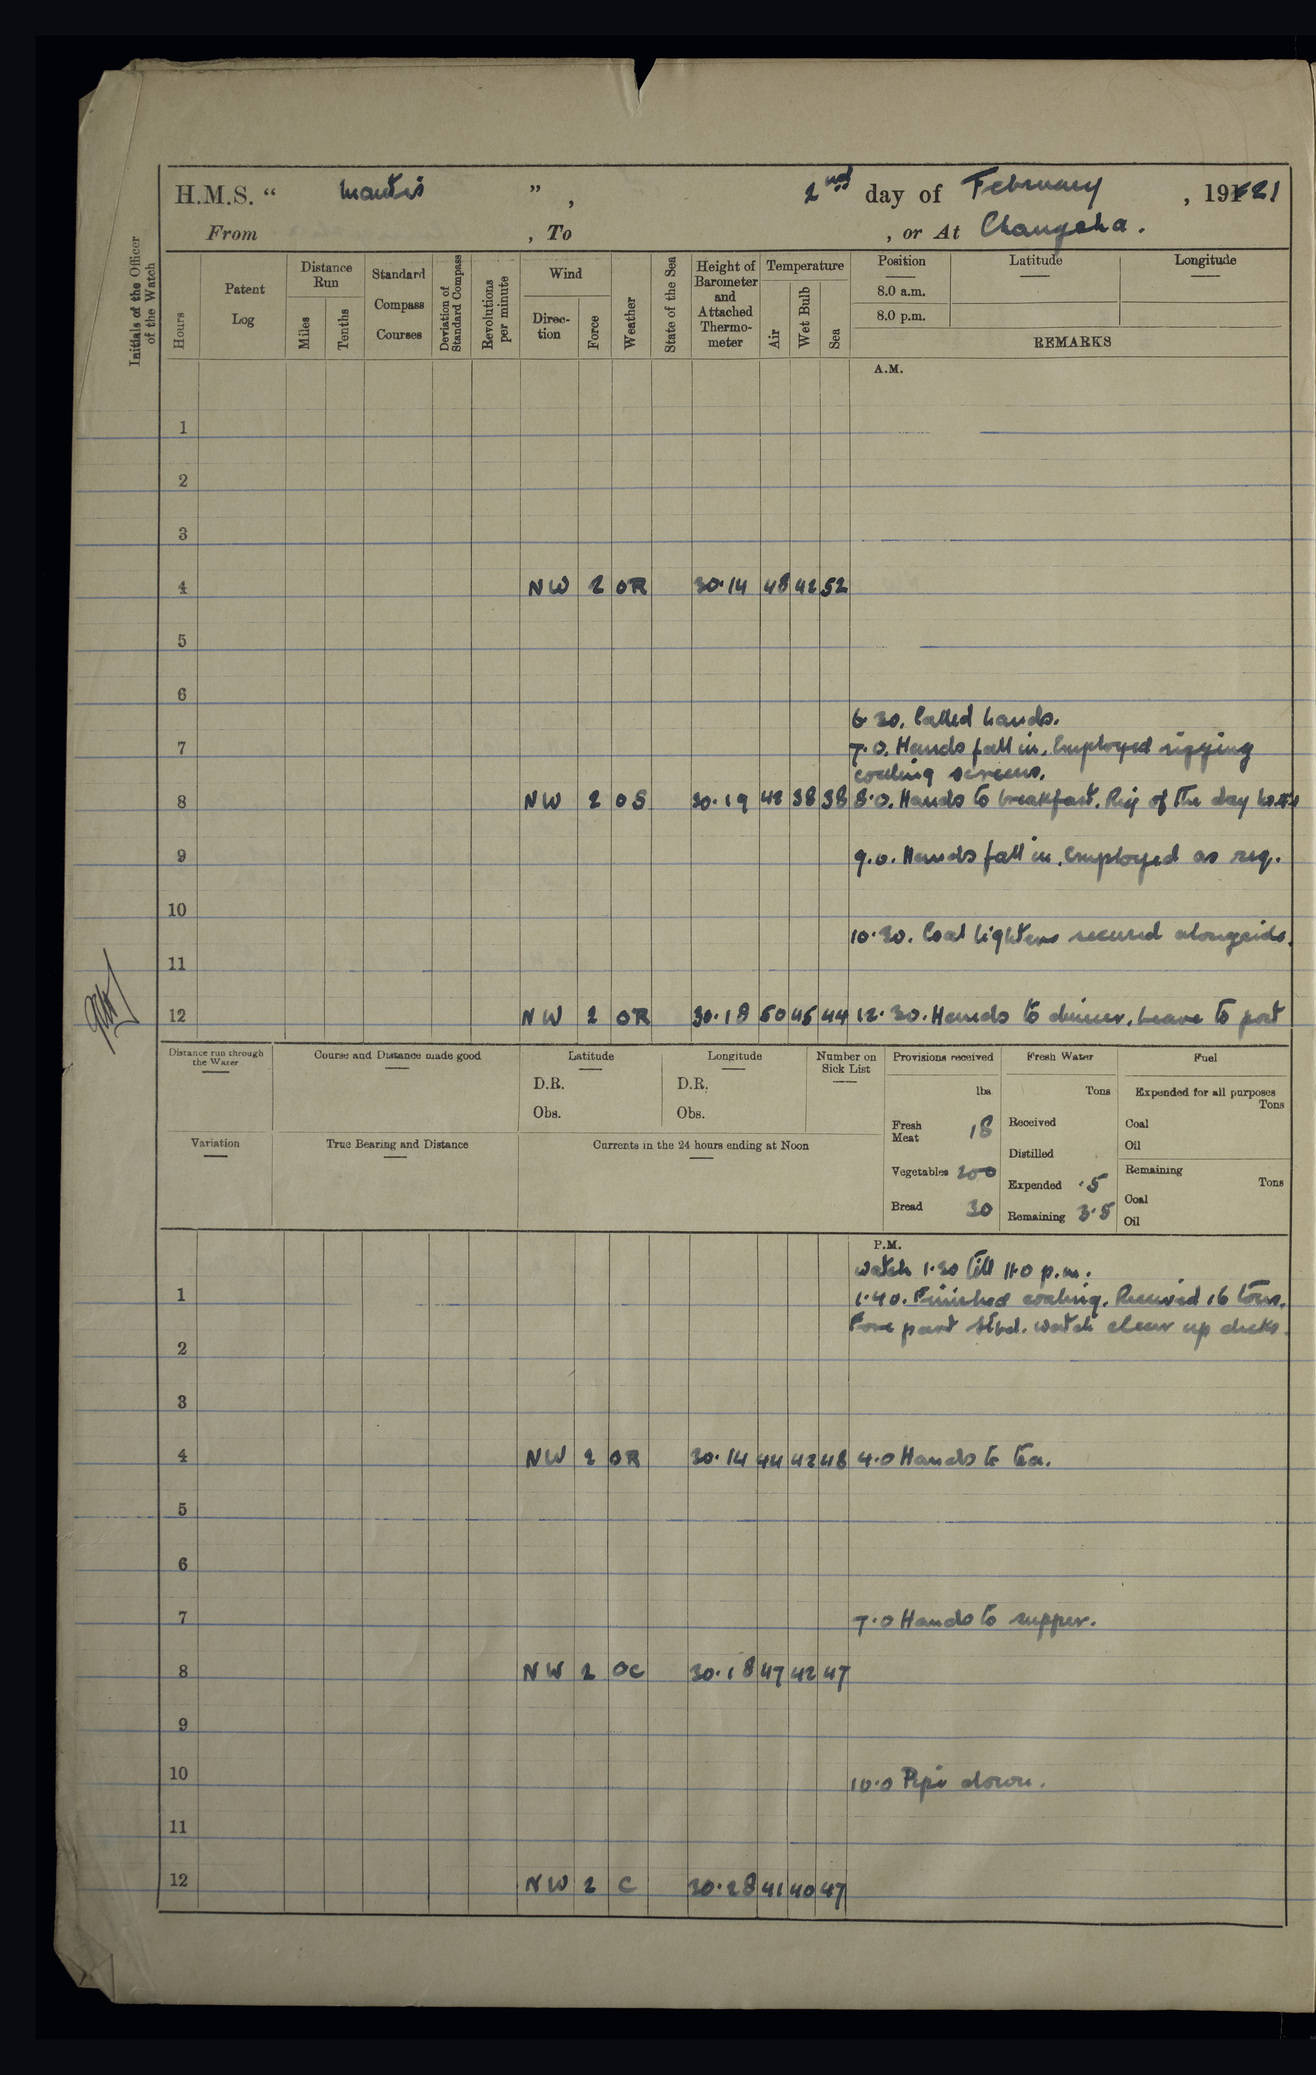 H.M.S. “ Mantis ” , 2nd day of February , 191 21
From , To , or At Changsha .
Initials of the Officer of the Watch
Hours
Patent Log
Distance Run
Miles
Tenths
Standard Compass Courses
Deviation of Standard Compass
Revolutions per minute
Wind
Direc- tion
Force
Weather
State of the Sea
Height of Barometer and Attached Thermo- meter
Temperature
Air
Wet Bulb
Sea
Position Latitude Longitude
8.0 a.m.
8.0 p.m.
REMARKS
A.M.
1
2
3
4 NW 2 OR 30·14 48 42 52
5
6
6·30. Called hands.
7 7·0. Hands fall in. Employed rigging
coaling screens.
8 NW 2 OS 30·19 42 38 38 8·0. Hands to breakfast. Rig of the day
9 9.0. Hands fall in. Employed as req.
10
10·30. Coal lighters secured alongside.
11
12 NW 2 OR 30·18 50 45 44 12·30. Hands to dinner. Leave to port
Distance run through the Water
Course and Distance made good
Latitude
D.R.
Obs.
Longitude
D.R.
Obs.
Number on Sick List
Provisions received
lbs
Fresh Meat 18
Vegetables 200
Bread 30
Fresh Water
Tons
Received
Distilled
Expended ·5
Remaining 3·5
Fuel
Expended for all purposes
Tons
Coal
Oil
Remaining
Tons
Coal
Oil
Variation
True Bearing and Distance
Currents in the 24 hours ending at Noon
P.M.
watch 1·30 till 11·0 p.m.
1 1·40. Finished coaling. Received 16 tons.
Fore part stbd. watch clear up decks.
2
3
4 NW 2 OR 30·14 44 42 48 4·0 Hands to tea.
5
6
7 7·0 Hands to supper.
8 NW 2 OC 30·18 47 42 47
9
10 10·0 Pipe down.
11
12 NW 2 C 30·28 41 40 47